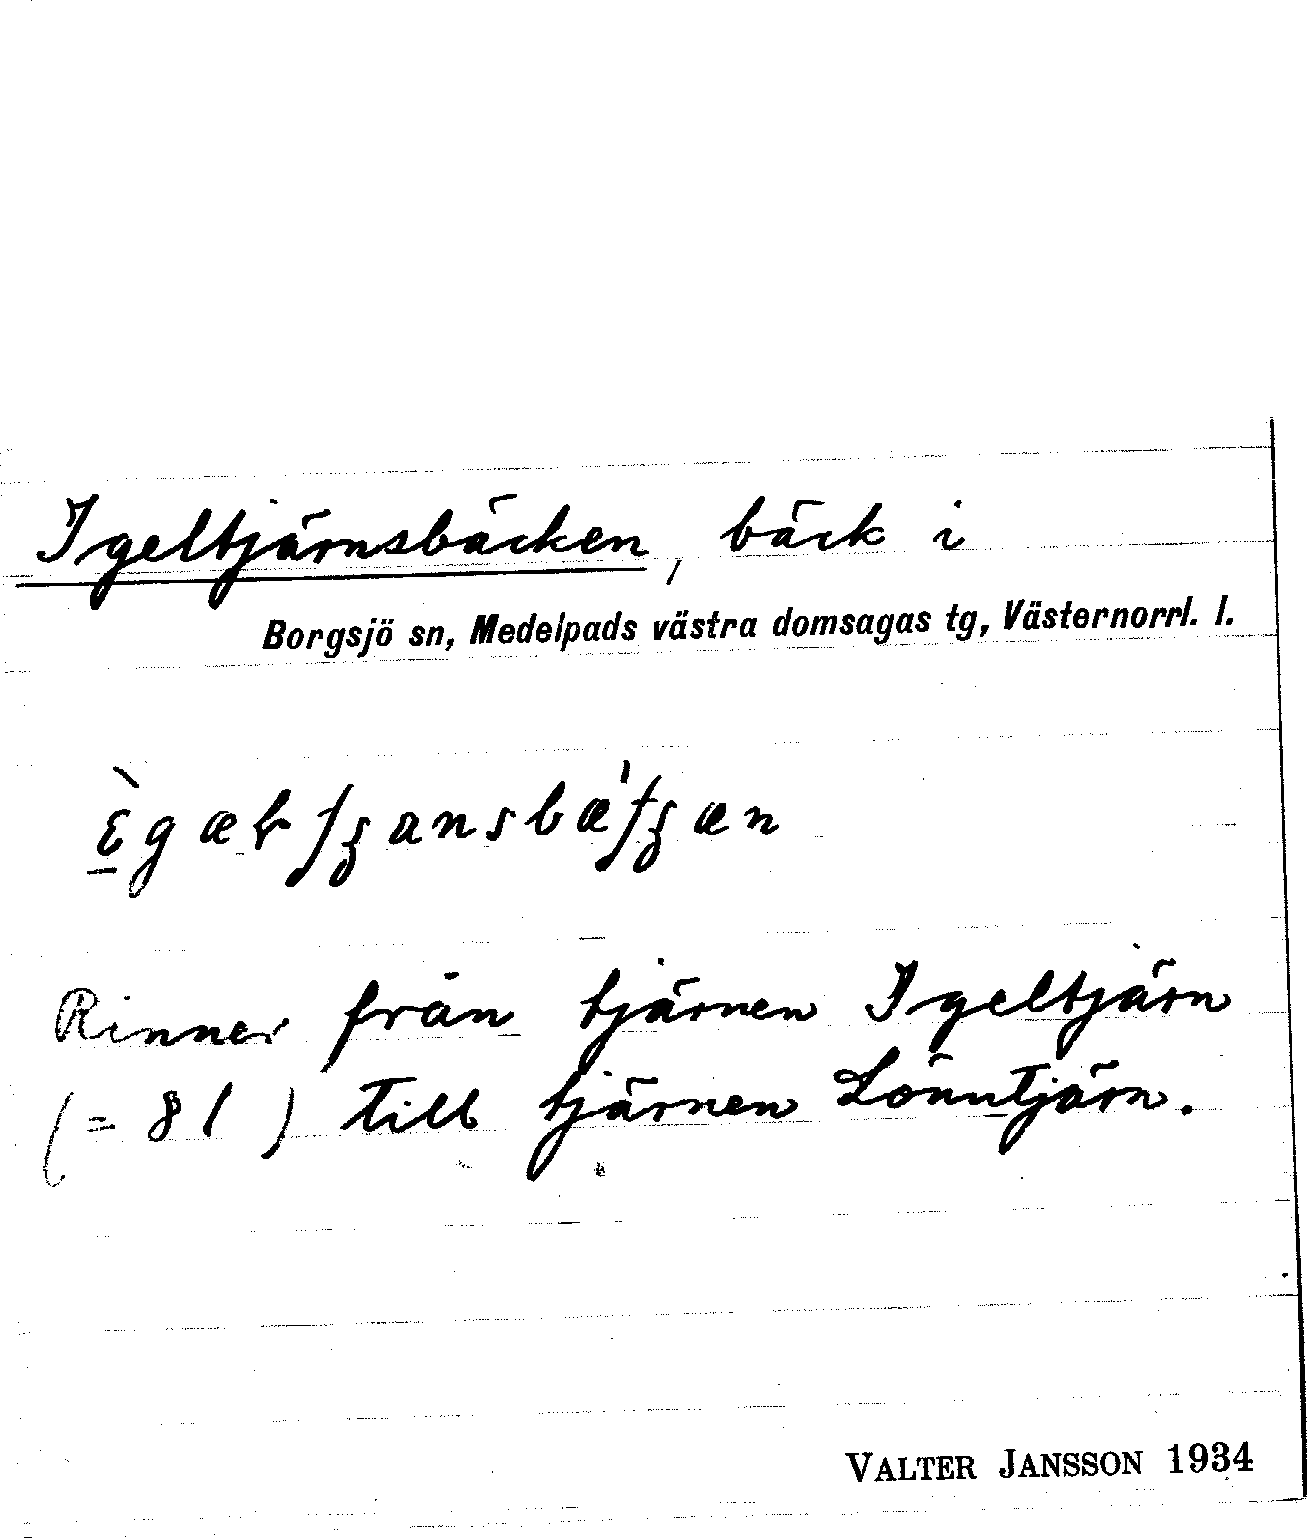 Igeltjärnsbäcken, bäck i
Borgsjö sn, Medelpads västra domsagas tg, Västernorrl. l.
Rinner från tjärnen Igeltjärn
(= 81) till tjärnen Lönntjärn.
VALTER JANSSON 1934